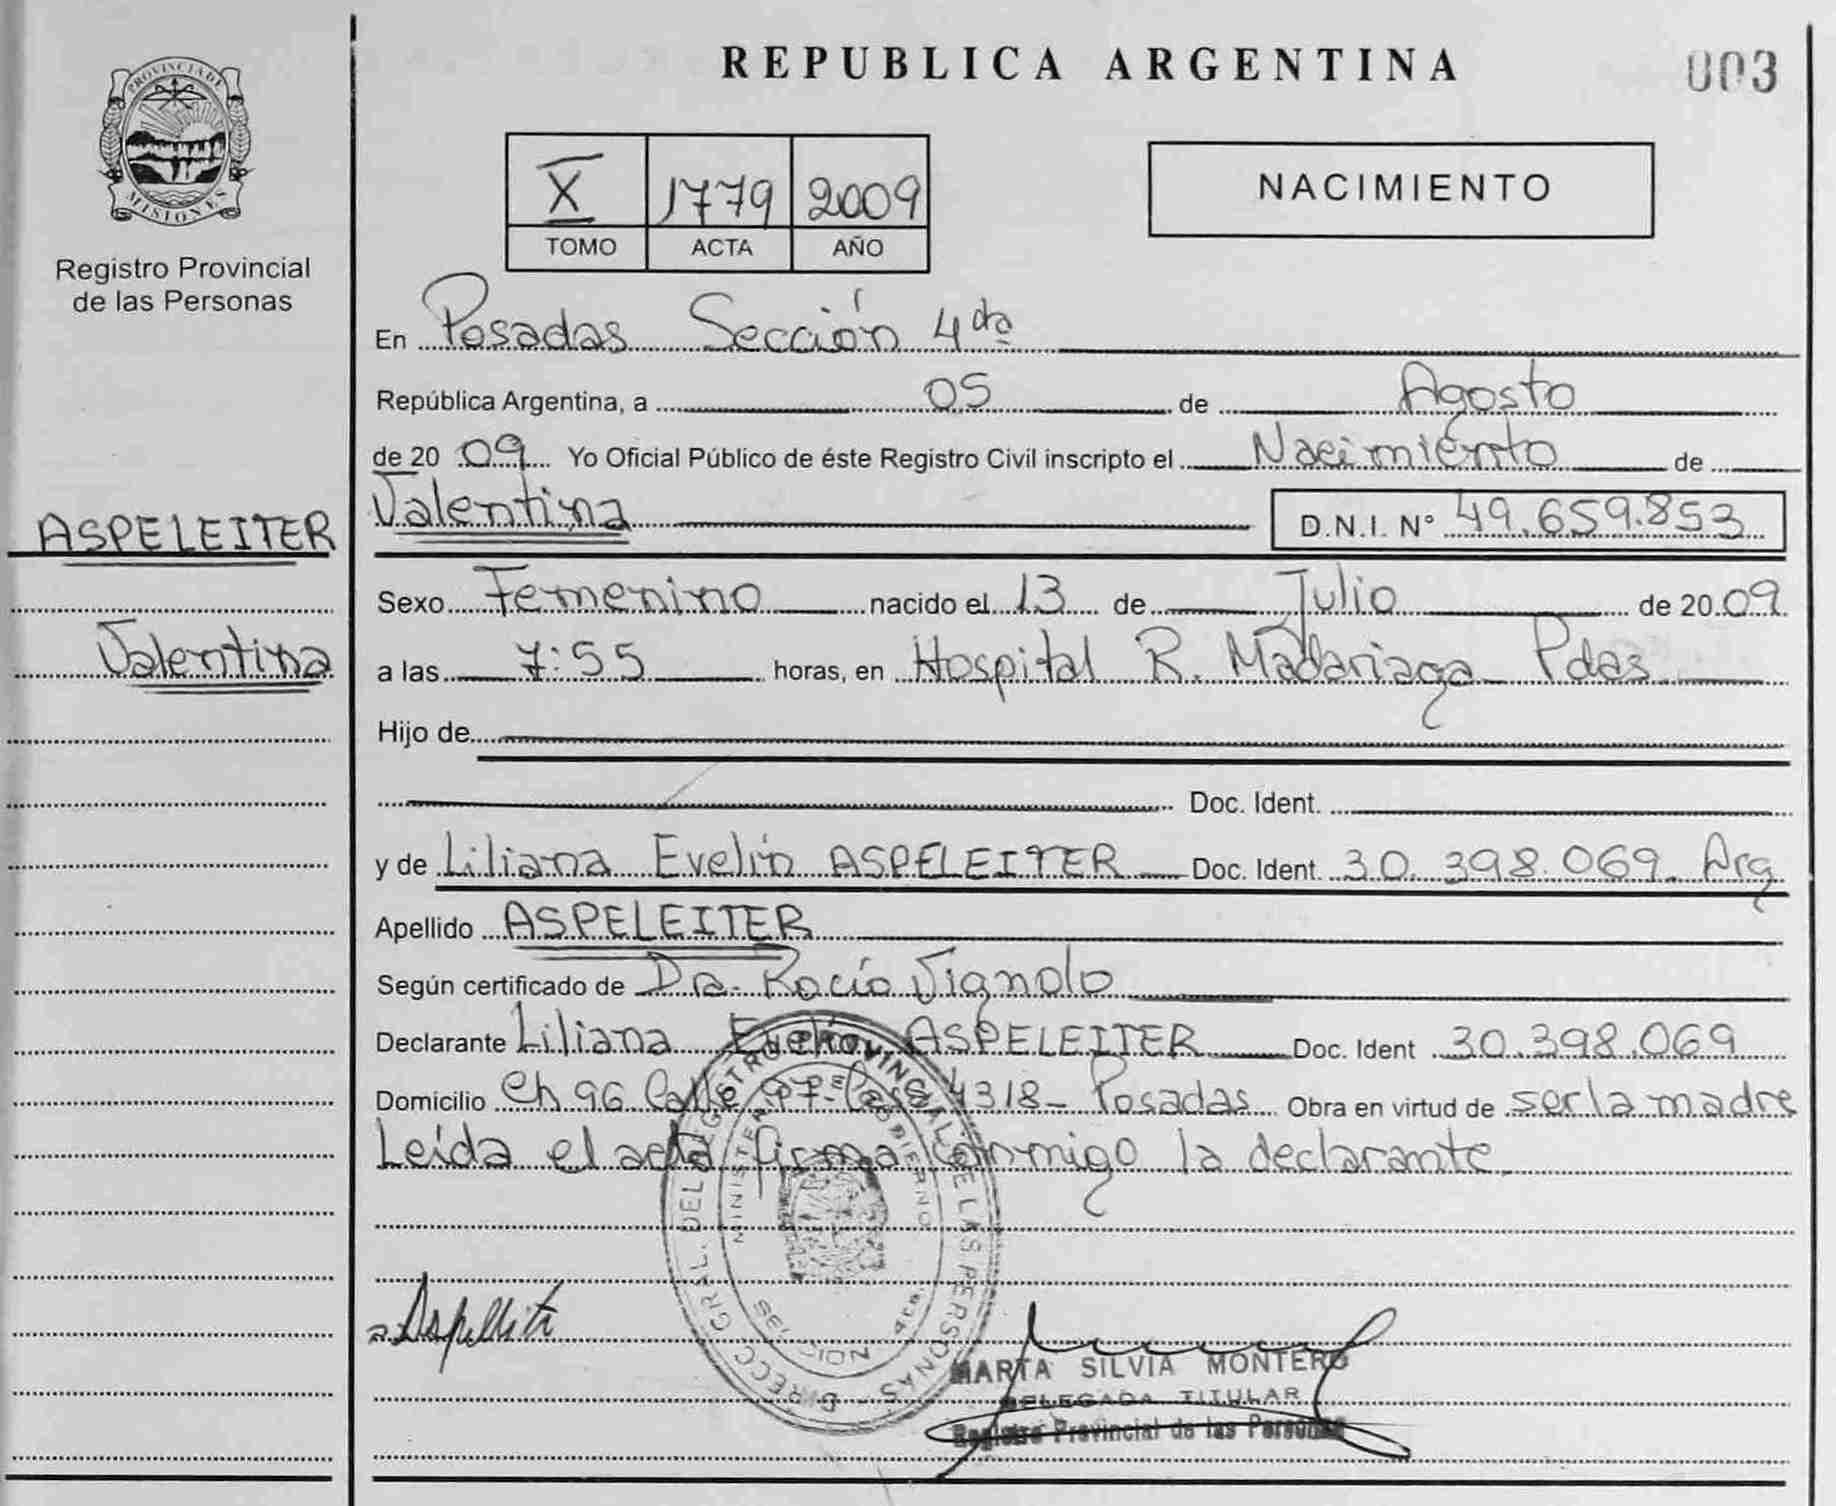 REPUBLICA ARGENTINA
003
PROVINCIA DE
MISIONES
Registro Provincial
de las Personas
X 1779 2009
TOMO ACTA AÑO
NACIMIENTO
En Posadas Sección 4ta
República Argentina, a 05 de Agosto
de 2009 Yo Oficial Público de éste Registro Civil inscripto el Nacimiento de
Valentina D.N.I. N° 49.659.853
ASPELEITER
Valentina
Sexo Femenino nacido el 13 de Julio de 2009
a las 7:55 horas, en Hospital R. Madariaga Pdas.
Hijo de
Doc. Ident.
y de Liliana Evelin ASPELEITER Doc. Ident. 30.398.069 Arg
Apellido ASPELEITER
Según certificado de Dra. Rocío Vignolo
Declarante Liliana Evelin ASPELEITER Doc. Ident 30.398.069
Domicilio Ch 96 Calle 97- Casa 4318- Posadas Obra en virtud de ser la madre
Leída el acta firma conmigo la declarante.
DIRECC. GRAL. DEL REGISTRO PROVINCIAL DE LAS PERSONAS
MINISTERIO DE GOBIERNO
MARTA SILVIA MONTERO
DELEGADA TITULAR
Registro Provincial de las Personas